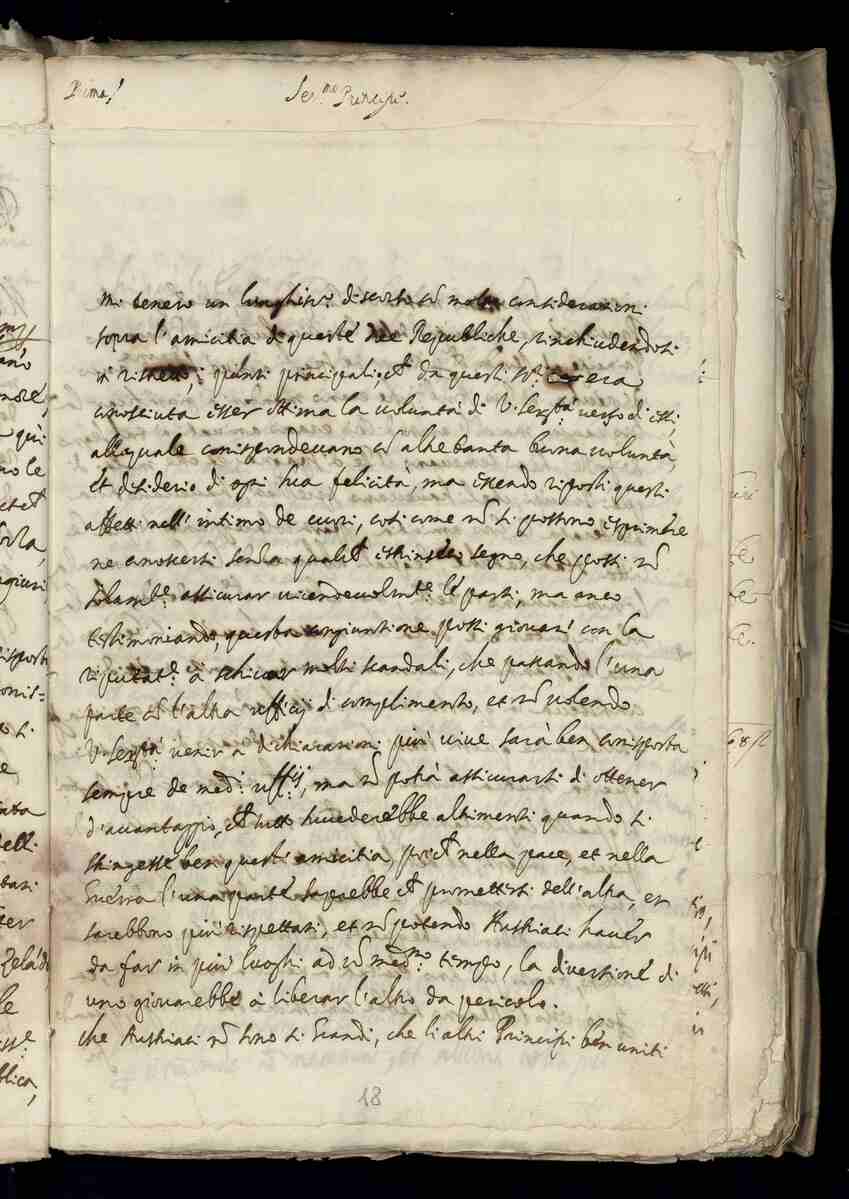 Prima,
Ser.mo Principe.
Mi tenero un lunghiss.o discorso cõ molte considerationi
sopra l'amicitia di queste due Republiche, rinchiudendosi
in ristretto, i punti principali, ch da questi SS.ri era
conosciuta esser ottima la volontà di V. Ser.tà verso di essi,
alla quale corrispondevano cõ altretanta buona volontà,
et desiderio di ogni sua felicità, ma essendo riposti questi
affetti nell'intimo de cuori, cosi come nõ si possono esprimere
ne conoscersi senza qualch esthinseco segno, che possi nõ
solam.te assicurar vicendevolm.te le parti, ma anco
testimoniando, questa congiuntione possi giovar con la
riputat.e à schivar molti scandali, che passando l'una
parte cõ l'altra ufficij di complimento, et nõ volendo
V. Ser.tà venir à dichiarationi più vive sarà ben corrisposta
sempre de med.i uff.ij, ma nõ potrà assicurarsi di ottener
d'avantaggio, ch tutto succederebbe altrimenti quando si
stringesse ben questa amicitia, perch nella pace, et nella
Guerra l'una parte saprebbe ch promettersi dell'altra, et
sarebbono più rispettati, et nõ potendo Austriaci haver
da far in più luoghi ad cõ med.mo tempo, la diversione di
uno giovarebbe à liberar l'altro da pericolo.
che Austriaci nõ sono si Grandi, che li altri Principi ben uniti
18